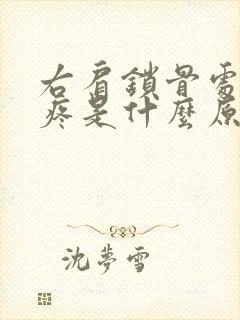 右肩鎖骨處
疼是什麼原
沈夢雪